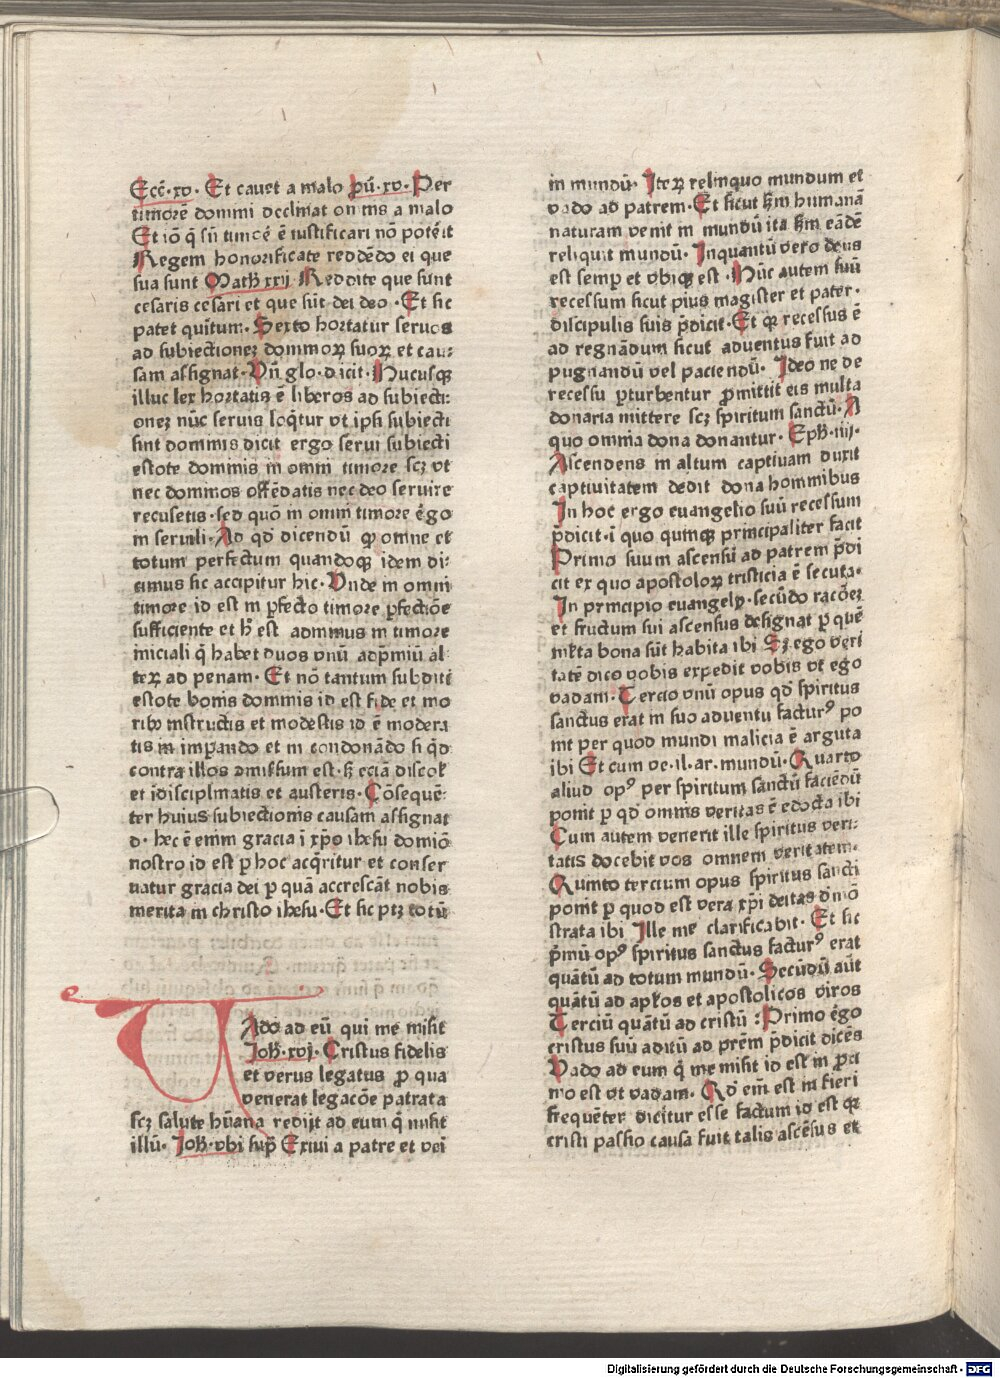 Eccē·xv. Et cavet a malo p̄ū·xv. Per
timorē domini declinat omnis a malo
Et iō q̄ sn̄ timcē ē iustificari nō poteīt
Regem honorificate reddēdo ei que
sua sunt Math xxij Reddite que sunt
cesaris cesari et que sūt dei deo · Et sic
patet quītum· Sexto hortatur seruos
ad subiectionez dominoꝝ suoꝝ et cau:
sam assignat· Vn̄ glo·dicit· Hucusqꝫ
illuc lex hortatis ē liberos ad subiecti:
onez nūc seruis loq̄tur vt ipsi subiecti
sint dominis dicit ergo serui subiecti
estote dominis in omni timore scꝫ vt
nec dominos offēdatis nec deo seruire
recusetis·sed quō in omni timore ēgo
in seruili· Ad qd̄ dicendū ꝙ omne et
totum perfectum quandoqꝫ idem di:
cimus sic accipitur hic· Vnde in omni
timore id est in ꝑfecto timore ꝑfectiōe
sufficiente et hꝰ est adminus in timore
iniciali q̄ habet duos vnū adp̄miū al
teꝝ ad penam· Et nō tantum subditi
estote bonis dominis id est fide et mo
ribꝫ instructis et modestis id ē modera
tis in imꝑando et in condonādo si qd̄
contra illos amissum est·sꝫ eciā discol̄
et īdisciplinatis et austeris· Cōsequē:
ter huius subiectionis causam assignat
d· hec ē enim gracia ī xp̄o ihesu domiō
nostro id est ꝑ hoc acq̄ritur et conser
uatur gracia dei ꝑ quā accrescāt nobis
merita in christo ihesu·Et sic ptꝫ totū
VAdo ad eū qui me misit
Joh̄·xvj· Cristus fidelis
et verus legatus ꝓ qua
venerat legacōe patrata
scꝫ salute hūana redijt ad eum q̄ misit
illū· Joh̄·vbi sup̄ Exiui a patre et vei
in mundū· Iteꝝ relinquo mundum et
vado ad patrem·Et sicut ẜm humanā
naturam venit in mundū ita ẜm eādē
reliquit mundū· Inquantū vero deus
est semꝑ et vbiqꝫ est ·Nūc autem suū
recessum sicut pius magister et pater·
discipulis suis p̄dicit·Et qꝛ recessus ē
ad regnādum sicut aduentus fuit ad
pugnandū vel paciendū· Ideo ne de
recessu ꝑturbentur ꝓmittit eis multa
donaria mittere scꝫ spiritum sanctū·A
quo omnia dona donantur· Eph̄·iiij·
Ascendens in altum captiuam duxit
captiuitatem dedit dona hominibus
In hoc ergo euangelio suū recessum
p̄dicit·ī quo quinqꝫ principaliter facit
Primo suum ascensū ad patrem p̄di
cit ex quo apostoloꝝ tristicia ē secuta·
In principio euangelij·secūdo racōeꝫ
et fructum sui ascensus designat ꝑ quē
mlta bona sūt habita ibi Sꝫ ego veri
tatē dico vobis expedit vobis vt ego
vadam·Tercio vnū opus qd̄ spiritus
sanctus erat in suo aduentu facturꝰ po
nit per quod mundi malicia ē arguta
ibi Et cum ve·il·ar·mundū· Quarto
aliud opꝰ per spiritum sanctū faciēdū
ponit ꝑ qd̄ omnis veritas ē edocta ibi
Cum autem venerit ille spiritus veri:
tatis docebit vos omnem veritatem·
Quinto tercium opus spiritus sancti
ponit ꝑ quod est vera xp̄i deitas dmō
strata ibi Ille me clarificabit· Et sic
p̄mū opꝰ spiritus sanctus facturꝰ erat
quātū ad totum mundū· Secūdū aūt
quātū ad apl̄os et apostolicos viros
Terciū quātū ad cristū : Primo ēgo
cristus suū aditū ad prēm p̄dicit dicēs
Vado ad eum q̄ me misit id est in ꝓci
no est vt vadam· Qd̄ eīm est in fieri
frequēter dicitur esse factum id est qꝛ
cristi passio causa fuit talis ascēsus et
Digitalisierung gefördert durch die Deutsche Forschungsgemeinschaft - DFG